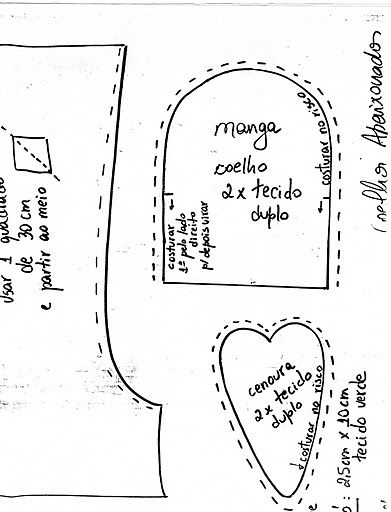 usar 1 quadrado
de 30 cm
e partir ao meio
manga
coelho
2 x tecido
duplo
costurar no risco
costurar
1º pelo lado
direito
p/ depois virar
cenoura
2 x tecido
duplo
costurar no risco
: 25cm x 10cm
tecido verde
Apaixonados